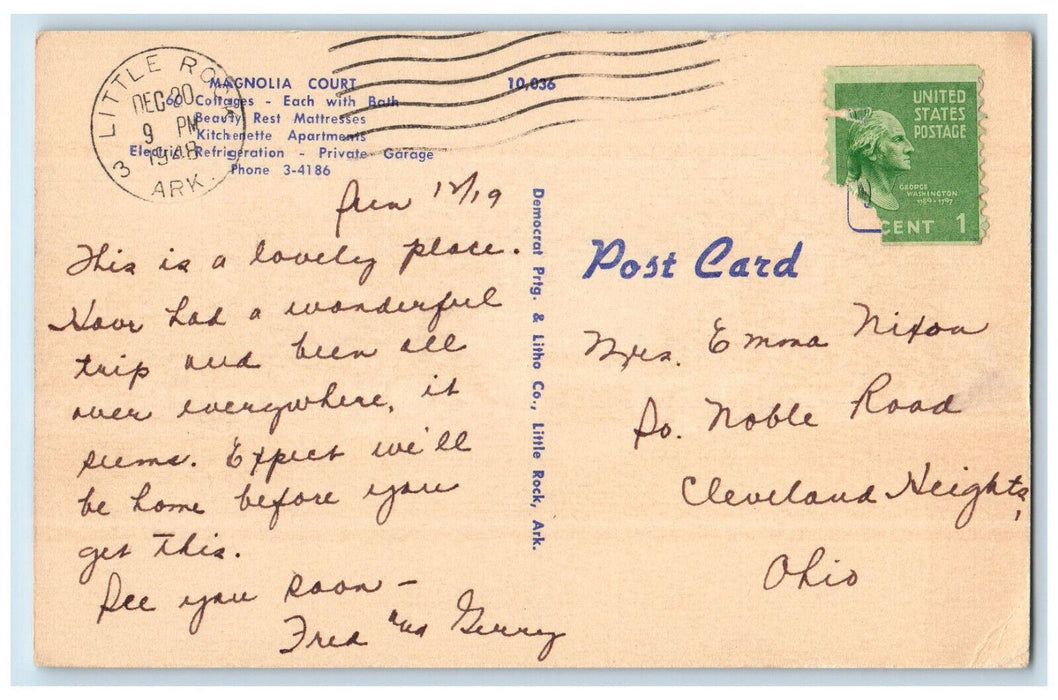 3 LITTLE ROCK
DEC 20
9 PM
1948
ARK.
MAGNOLIA COURT
60 Cottages - Each with Bath
Beauty Rest Mattresses
Kitchenette Apartments
Electric Refrigeration - Private Garage
Phone 3-4186
10,036
12/19
This is a lovely place.
Have had a wonderful
trip and been all
over everywhere, it
seems. Expect we'll
be home before you
get this.
See you soon -
Fred and Gerry
Democrat Prtg. & Litho Co., Little Rock, Ark.
UNITED
STATES
POSTAGE
GEORGE
WASHINGTON
1789-1797
CENT 1
Post Card
Mrs. Emma Nixon
So. Noble Road
Cleveland Heights,
Ohio